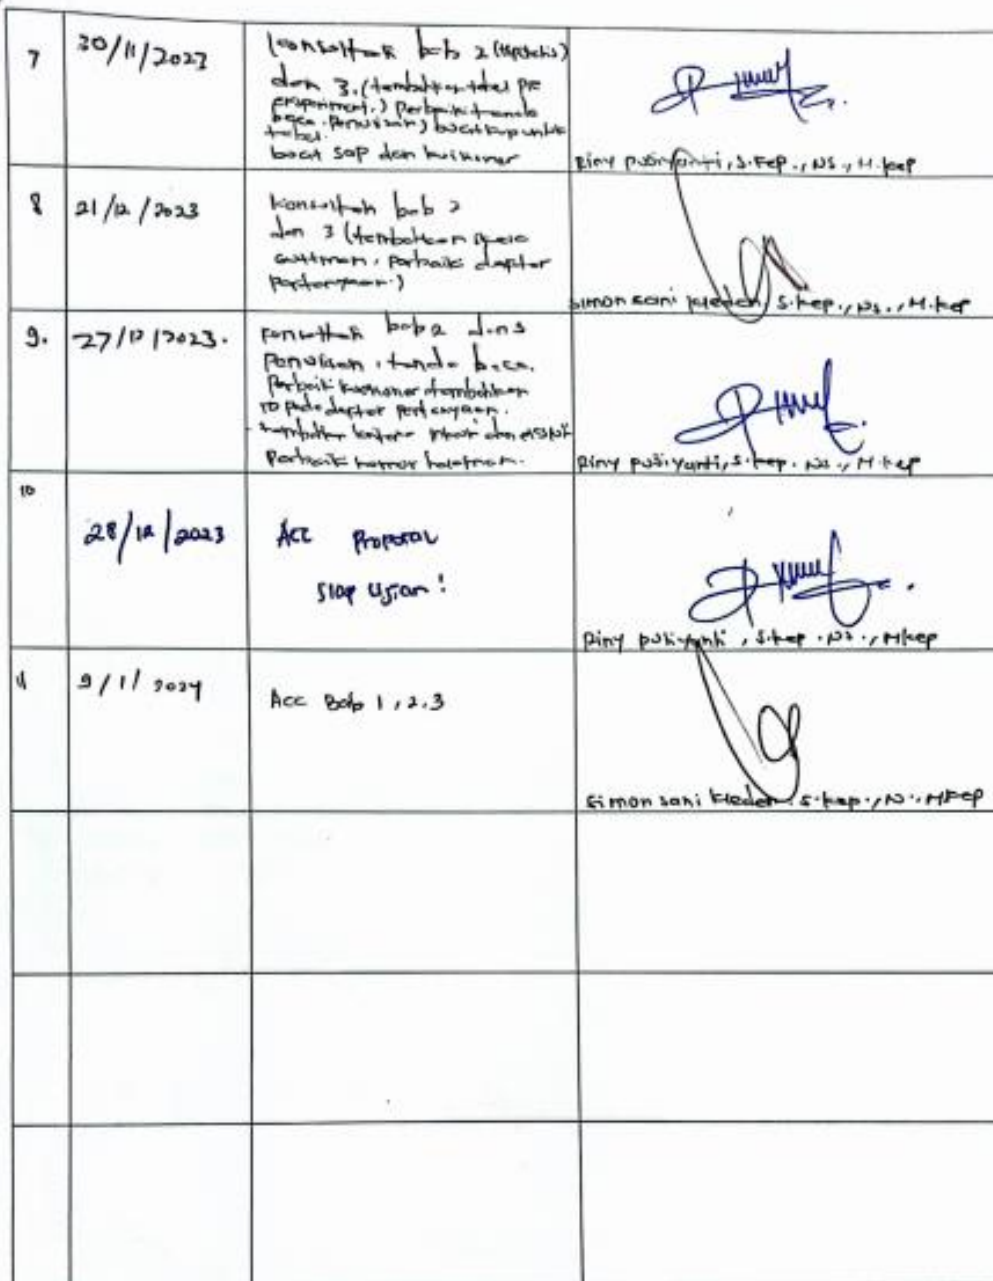 7
30/11/2023
konsultasi bab 2 (Hipotesis)
dan 3. (tambahkan tabel pre
eksperiment.) Perbaiki tanda
baca. Penulisan)
tabel.
buat SAP dan kuisioner
Riny pusiyanti, S.Kep., NS., M.Kep
8
21/12/2023
konsultasi bab 2
dan 3 (tambahkan
guttman, perbaiki daptar
pertanyaan.)
simon sani kleden, S.kep., Ns., M.kep
9.
27/12/2023.
konsultasi bab 2 dan 3
Penulisan, tanda baca.
Perbaiki kuesioner tambahkan
10 pada daptar pertanyaan.
- tambahkan
Perbaiki nomor halaman.
Riny pusiyanti, S.kep. Ns., M.kep
10
28/12/2023
Acc Proposal
siap ujian!
Riny pusiyanti, S.kep. Ns., Mkep
11
9/1/2024
Acc Bab 1, 2, 3
simon sani kleden. S.kep., N., MKep